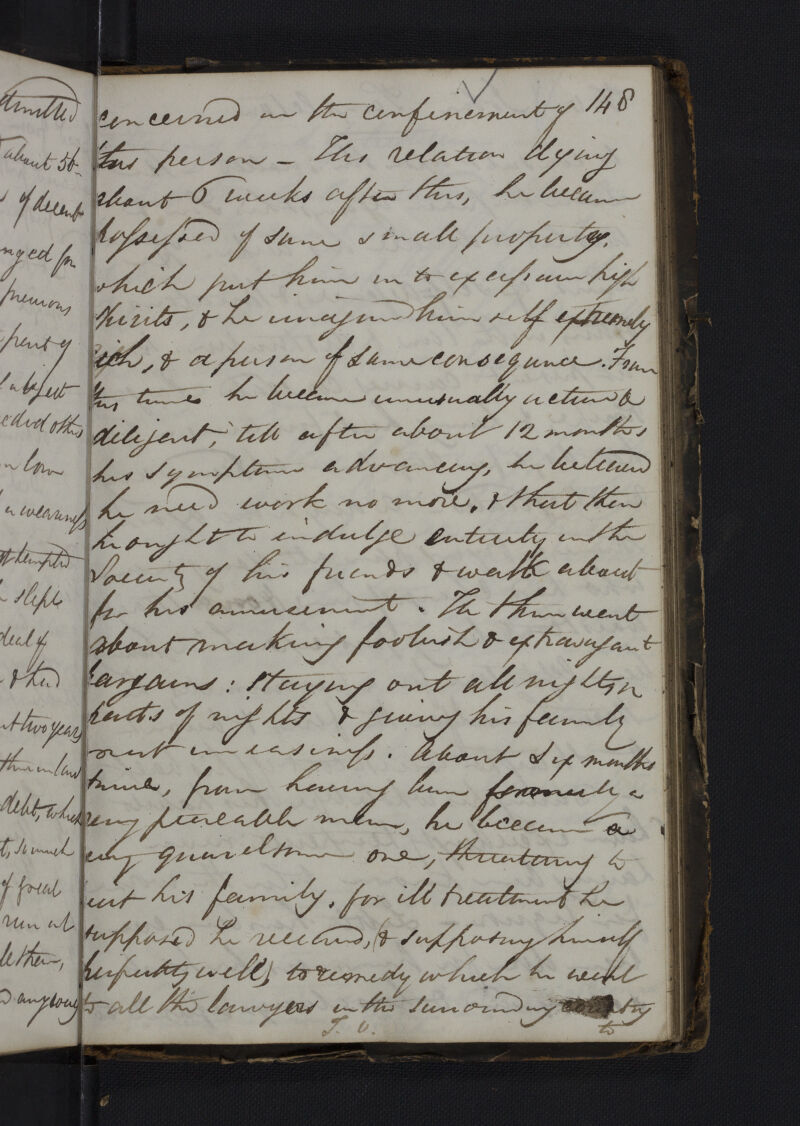 148
concerned in the confinement of
this person - The relation dying
about 6 weeks after this, he became
possessed of some small property,
which put him in to excessive high
spirits, & he imagined himself extremely
rich, & a person of some consequence. From
this time he became unusually active &
diligent, till after about 12 months
his symptoms advancing, he believed
he need work no more, & that then
he ought to indulge entirely in the
Society of his friends & walk about
for his amusement. He then went
about making foolish & extravagant
bargains: staying out all night, or
parts of nights & giving his family
great uneasiness. About six months
since, from having been formerly a
very peaceable man, he became a
very quarelsome one, threatening to
hurt his family, for ill treatment he
supposed he received, (& supposing himself
perfectly well) to remedy which he went
to all the lawyers in the surrounding country
T. O.
to
dmitted
about 56
of decent
nged for
previous
pent of
subject
others
n low
weariness
attempted
slept
deal of
& had
two years
debt, which
t, so much
of great
run at
let them,
anybody